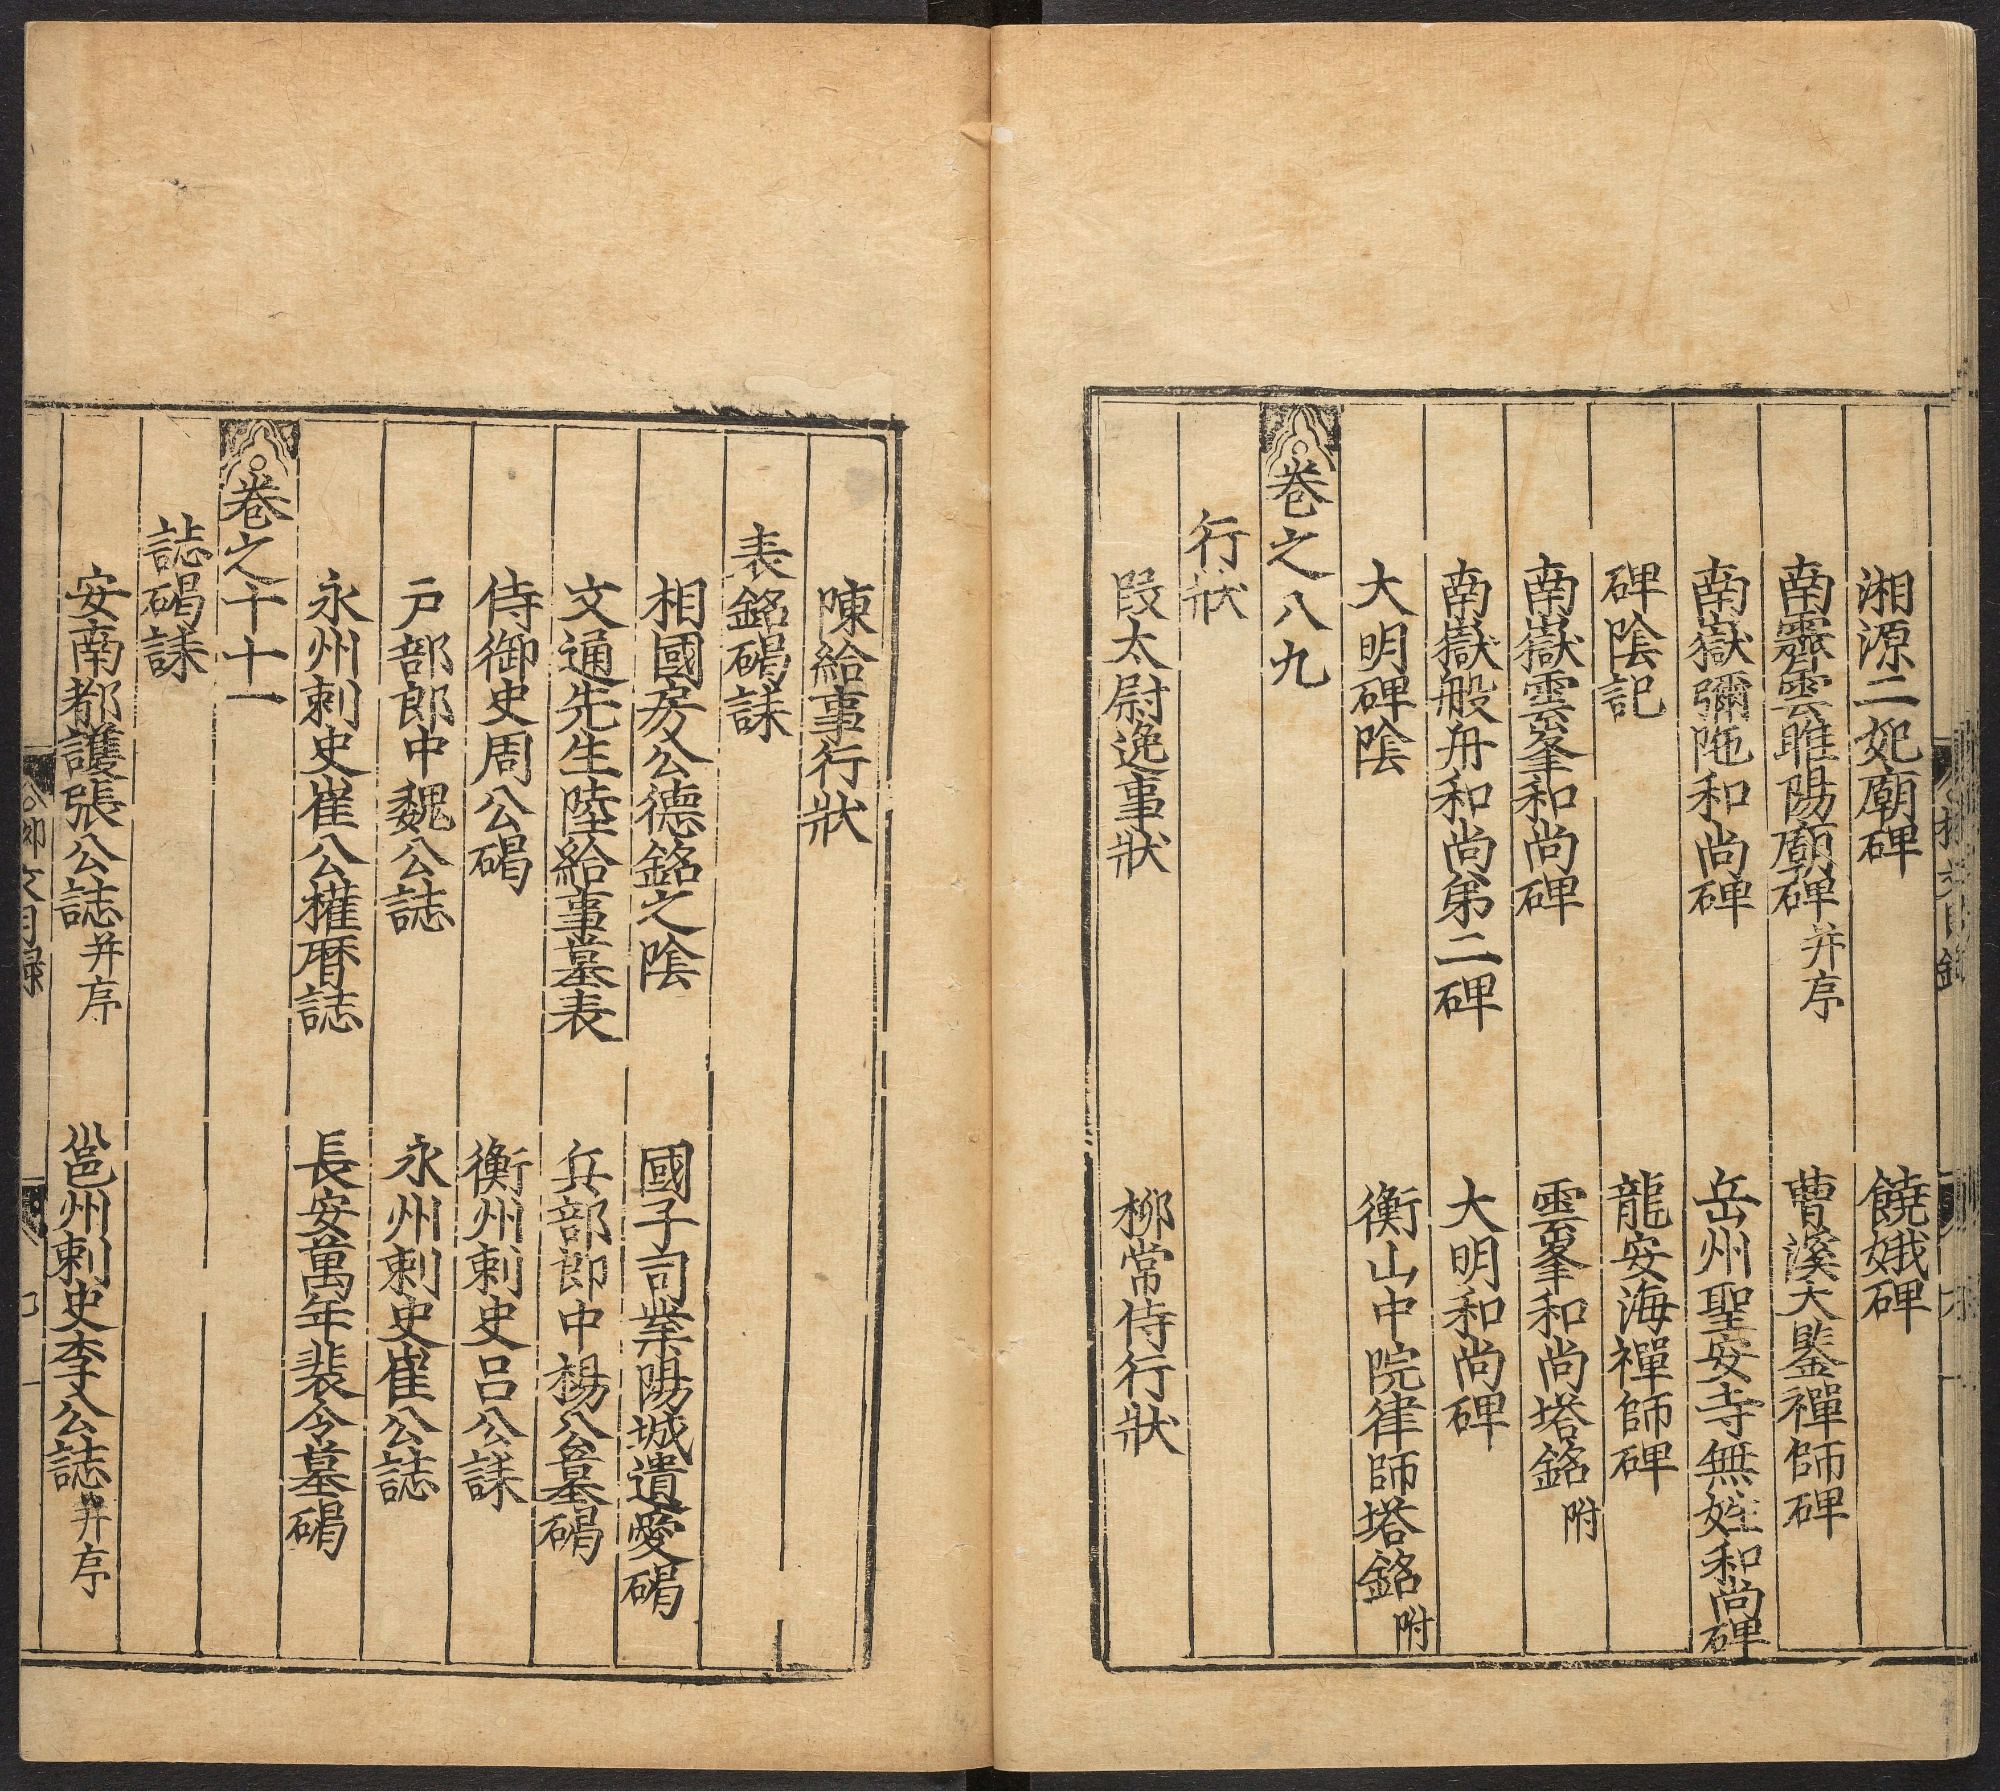 湘源二妃廟碑　饒娥碑
南霽雲睢陽廟碑并序　曹溪大鑒禪師碑
南嶽彌陁和尚碑　岳州聖安寺無姓和尚碑
碑陰記　龍安海禪師碑
南嶽雲峯和尚碑　雲峯和尚塔銘附
南嶽般舟和尚第二碑　大明和尚碑
大明碑陰　衡山中院律師塔銘附
卷之八九
行狀
段太尉逸事狀　柳常侍行狀
陳給事行狀
表銘碣誄
相國房公德銘之陰　國子司業陽城遺愛碣
文通先生陸給事墓表　兵部郎中楊公墓碣
侍御史周公碣　衡州刺史呂公誄
戸部郎中魏公誌　永州刺史崔公誌
永州刺史崔公權厝誌　長安萬年裴令墓碣
卷之十十一
誌碣誄
安南都護張公誌并序　邕州刺史李公誌并序
文目録